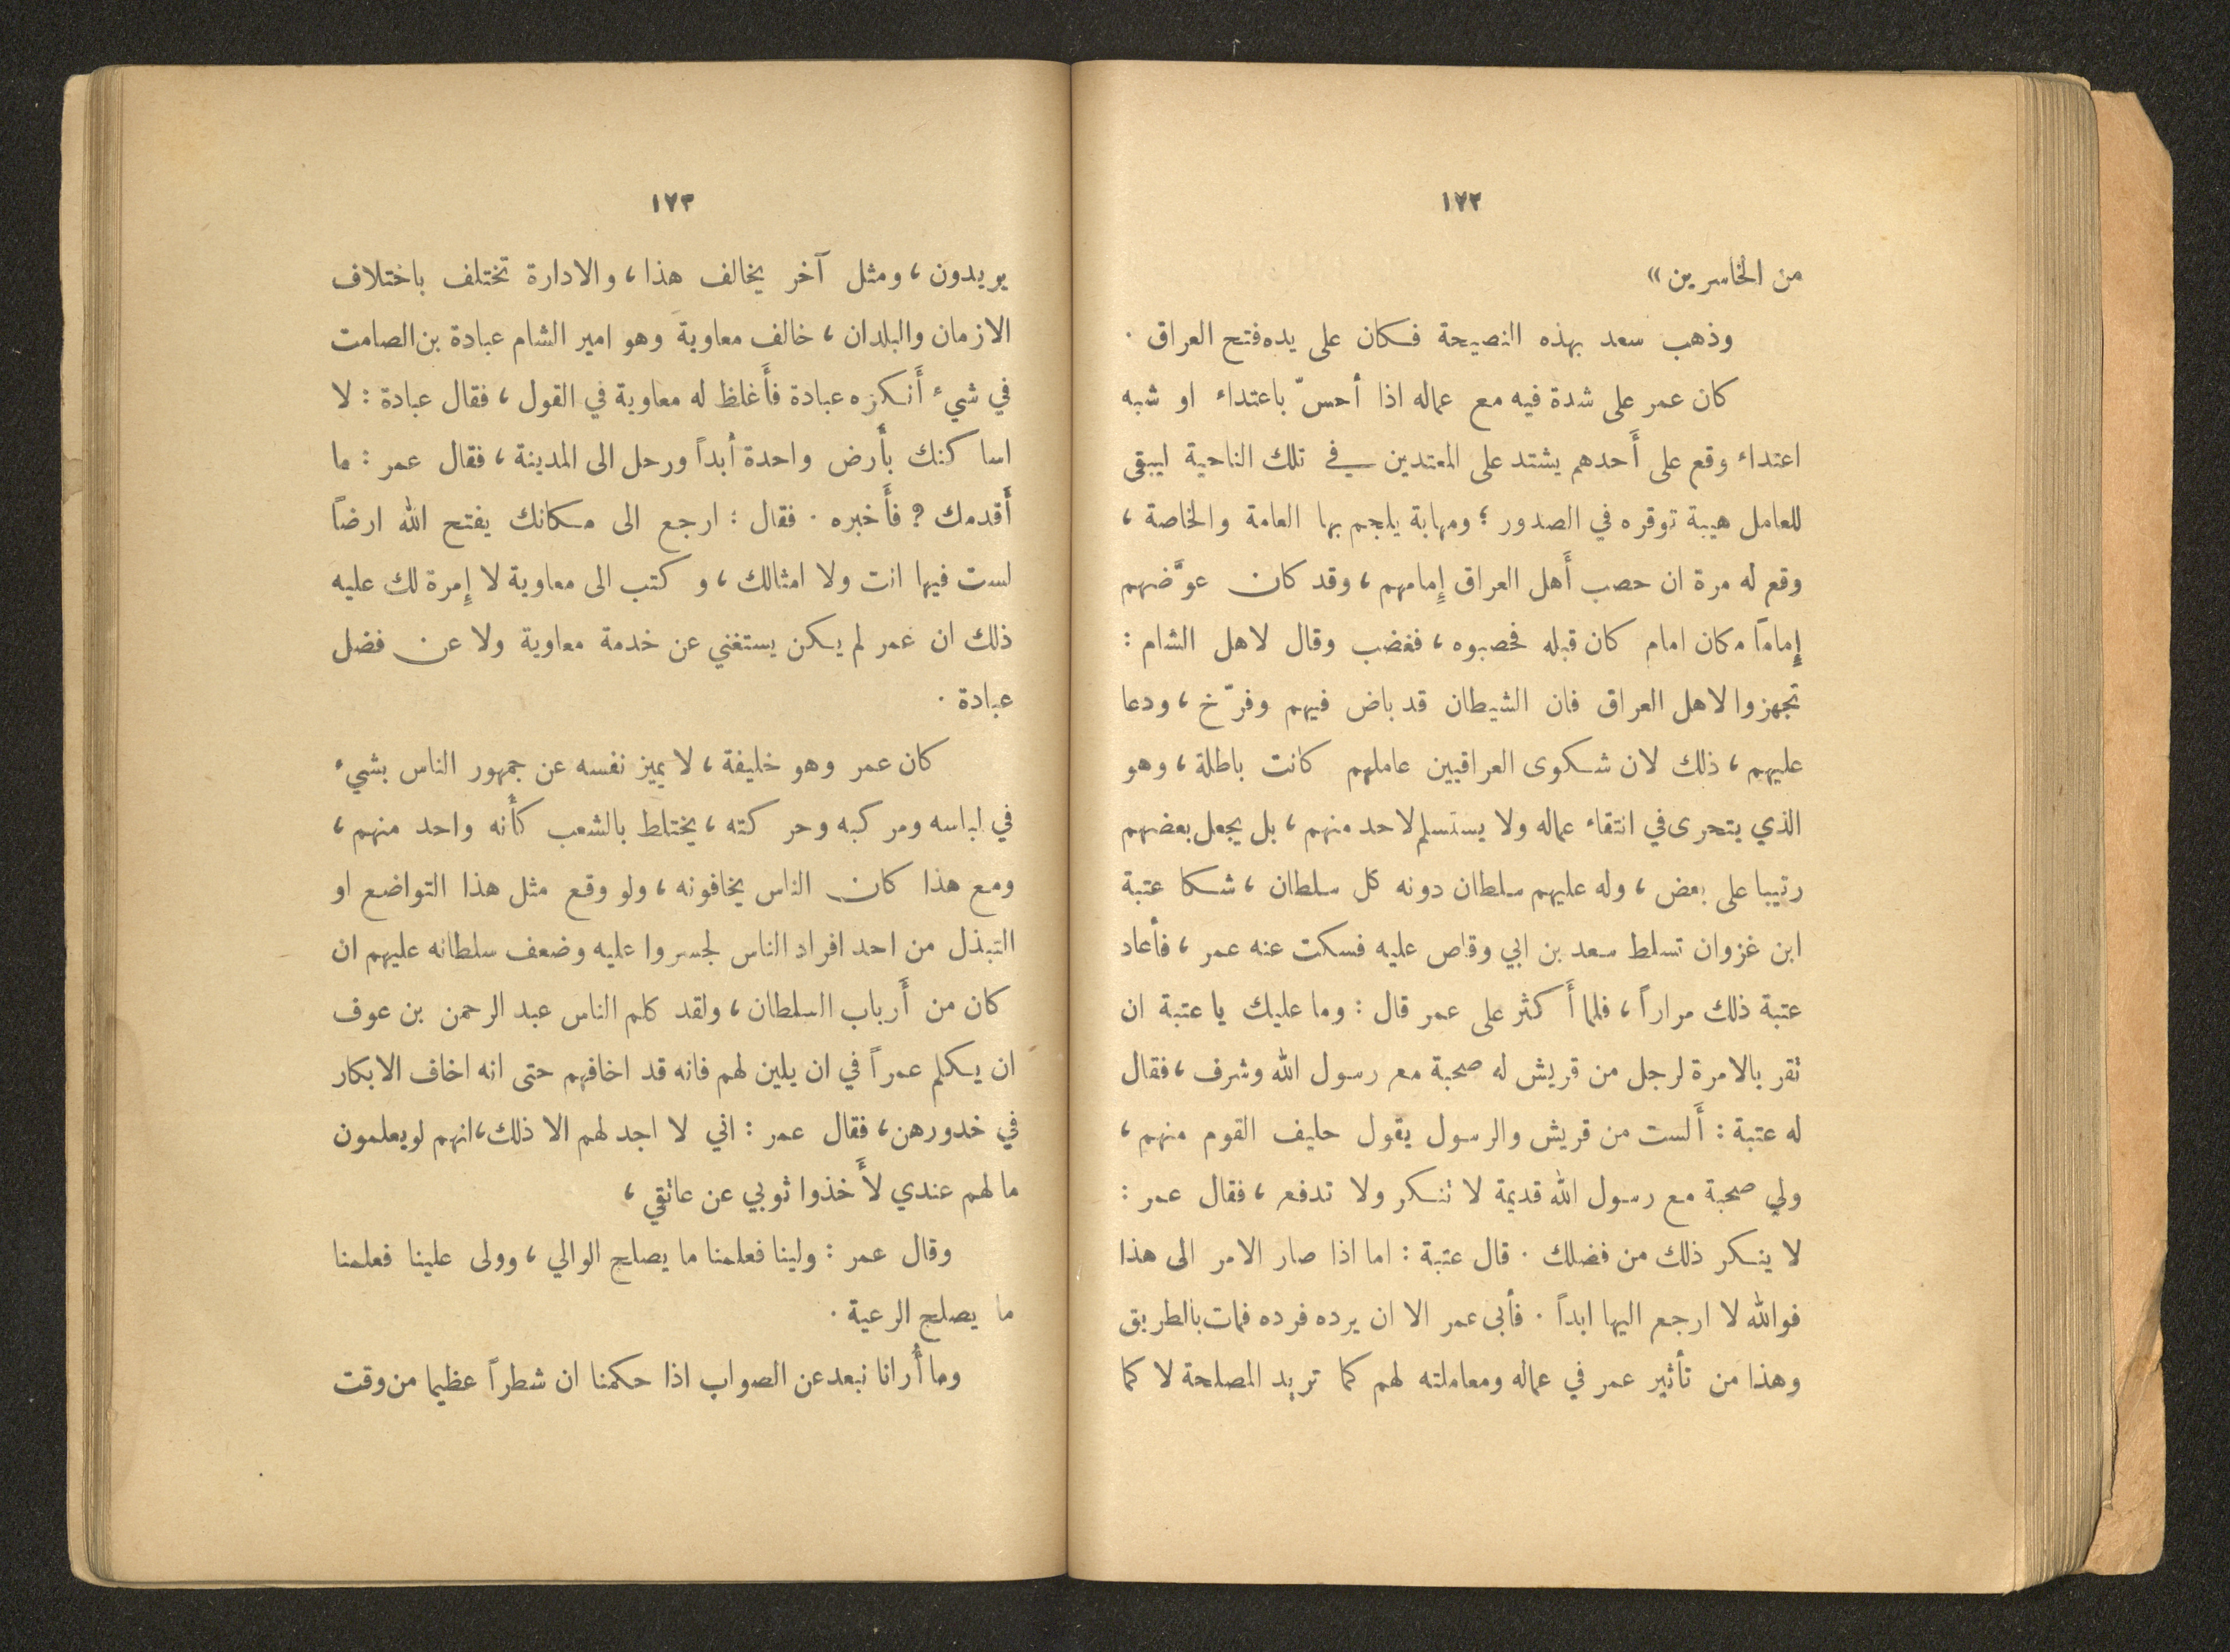 ١٧٢
من الخاسرين»
وذهب سعد بهذه النصيحة فكان على يده فتح العراق .
كان عمر على شدة فيه مع عماله اذا أحسّ باعتداء او شبه
اعتداء وقع على أَحدهم يشتد على المعتدين في تلك الناحية ليبقى
للعامل هيبة توقره في الصدور ؛ ومهابة يلجم بها العامة والخاصة ،
وقع له مرة ان حصب أَهل العراق إِمامهم ، وقد كان عوَّضهم
إِماماً مكان امام كان قبله فحصبوه ، فغضب وقال لاهل الشام :
تجهزوا لاهل العراق فان الشيطان قد باض فيهم وفرّخ ، ودعا
عليهم ، ذلك لان شكوى العراقيين عاملهم كانت باطلة ، وهو
الذي يتحرى في انتقاء عماله ولا يستسلم لاحد منهم ، بل يجعل بعضهم
رتيبا على بعض ، وله عليهم سلطان دونه كل سلطان ، شكا عتبة
ابن غزوان تسلط سعد بن ابي وقاص عليه فسكت عنه عمر ، فأعاد
عتبة ذلك مراراً ، فلما أَكثر على عمر قال : وما عليك يا عتبة ان
تقر بالامرة لرجل من قريش له صحبة مع رسول الله وشرف ، فقال
له عتبة : أَلست من قريش والرسول يقول حليف القوم منهم ،
ولي صحبة مع رسول الله قديمة لا تنكر ولا تدفع ، فقال عمر :
لا ينكر ذلك من فضلك . قال عتبة : اما اذا صار الامر الى هذا
فوالله لا ارجع اليها ابداً . فأبى عمر الا ان يرده فرده فمات بالطريق
وهذا من تأثير عمر في عماله ومعاملته لهم كما تريد المصلحة لا كما
١٧٣
يريدون ، ومثل آخر يخالف هذا ، والادارة تختلف باختلاف
الازمان والبلدان ، خالف معاوية وهو امير الشام عبادة بن الصامت
في شيء أَنكره عبادة فأَغلظ له معاوية في القول ، فقال عبادة : لا
اساكنك بأَرض واحدة أبداً ورحل الى المدينة ، فقال عمر : ما
أَقدمك ? فأَخبره . فقال : ارجع الى مكانك يفتح الله ارضاً
لست فيها انت ولا امثالك ، وكتب الى معاوية لا إِمرة لك عليه
ذلك ان عمر لم يكن يستغني عن خدمة معاوية ولا عن فضل
عبادة .
كان عمر وهو خليفة ، لا يميز نفسه عن جمهور الناس بشيء
في لباسه ومركبه وحركته ، يختلط بالشعب كأَنه واحد منهم ،
ومع هذا كان الناس يخافونه ، ولو وقع مثل هذا التواضع او
التبذل من احد افراد الناس لجسروا عليه وضعف سلطانه عليهم ان
كان من أَرباب السلطان ، ولقد كلم الناس عبد الرحمن بن عوف
ان يكلم عمراً في ان يلين لهم فانه قد اخافهم حتى انه اخاف الابكار
في خدورهن ، فقال عمر : اني لا اجد لهم الا ذلك ، انهم لو يعلمون
ما لهم عندي لأَخذوا ثوبي عن عاتقي ،
وقال عمر : ولينا فعلمنا ما يصلح الوالي ، وولى علينا فعلمنا
ما يصلح الرعية .
وما أُرانا نبعد عن الصواب اذا حكمنا ان شطراً عظيما من وقت